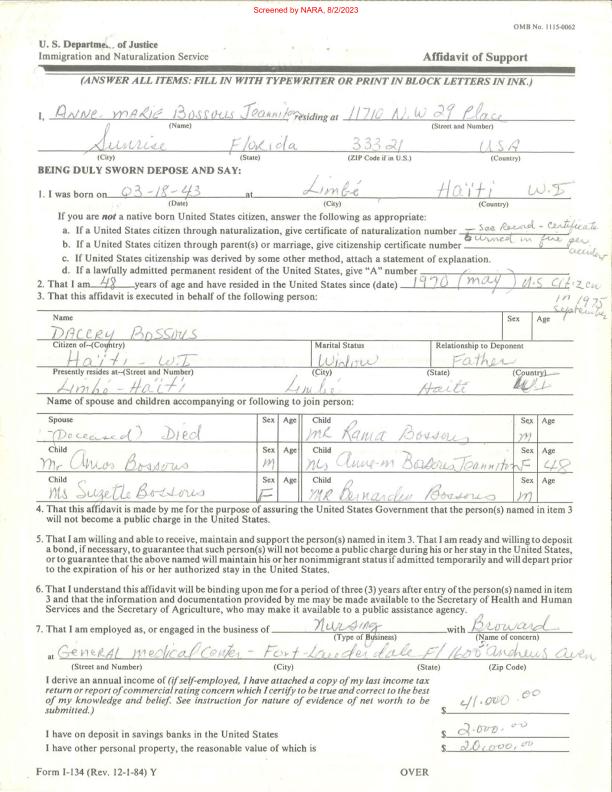 Screened by NARA, 8/2/2023
OMB No. 1115-0062
U. S. Department of Justice
Immigration and Naturalization Service Affidavit of Support
(ANSWER ALL ITEMS: FILL IN WITH TYPEWRITER OR PRINT IN BLOCK LETTERS IN INK.)
I, ANNE-MARIE Bossous Jeanniton residing at 11710 N.W 29 Place
(Name) (Street and Number)
Sunrise Florida 33321 USA
(City) (State) (ZIP Code if in U.S.) (Country)
BEING DULY SWORN DEPOSE AND SAY:
1. I was born on 03-18-43 at Limbé Haïti W.I
(Date) (City) (Country)
If you are not a native born United States citizen, answer the following as appropriate:
a. If a United States citizen through naturalization, give certificate of naturalization number See Record - Certificate
b. If a United States citizen through parent(s) or marriage, give citizenship certificate number burned in fire per accident
c. If United States citizenship was derived by some other method, attach a statement of explanation.
d. If a lawfully admitted permanent resident of the United States, give "A" number
2. That I am 48 years of age and have resided in the United States since (date) 1970 (may) U.S Citizen
in 1975
September
3. That this affidavit is executed in behalf of the following person:
Name Sex Age
DACCRY BOSSOUS
Citizen of--(Country) Marital Status Relationship to Deponent
Haïti - W.I Widow Father
Presently resides at--(Street and Number) (City) (State) (Country)
Limbé - Haïti Limbé Haiti WI
Name of spouse and children accompanying or following to join person:
Spouse Sex Age Child Sex Age
(Deceased) Died MR Rama Bossous M
Child Sex Age Child Sex Age
Mr Amos Bossous M Ms Anne-m Bossous Jeanniton F 48
Child Sex Age Child Sex Age
Ms Suzette Bossous F MR Bernardin Bossous M
4. That this affidavit is made by me for the purpose of assuring the United States Government that the person(s) named in item 3
will not become a public charge in the United States.
5. That I am willing and able to receive, maintain and support the person(s) named in item 3. That I am ready and willing to deposit
a bond, if necessary, to guarantee that such person(s) will not become a public charge during his or her stay in the United States,
or to guarantee that the above named will maintain his or her nonimmigrant status if admitted temporarily and will depart
prior to the expiration of his or her authorized stay in the United States.
6. That I understand this affidavit will be binding upon me for a period of three (3) years after entry of the person(s) named in item
3 and that the information and documentation provided by me may be made available to the Secretary of Health and Human
Services and the Secretary of Agriculture, who may make it available to a public assistance agency.
7. That I am employed as, or engaged in the business of Nursing with Broward
(Type of Business) (Name of concern)
at General medical Center - Fort-Lauderdale Fl 1600 Andrews aven
(Street and Number) (City) (State) (Zip Code)
I derive an annual income of (if self-employed, I have attached a copy of my last income tax
return or report of commercial rating concern which I certify to be true and correct to the best
of my knowledge and belief. See instruction for nature of evidence of net worth to be
submitted.) $ 41.000.00
I have on deposit in savings banks in the United States $ 2.000.00
I have other personal property, the reasonable value of which is $ 20,000.00
Form I-134 (Rev. 12-1-84) Y OVER